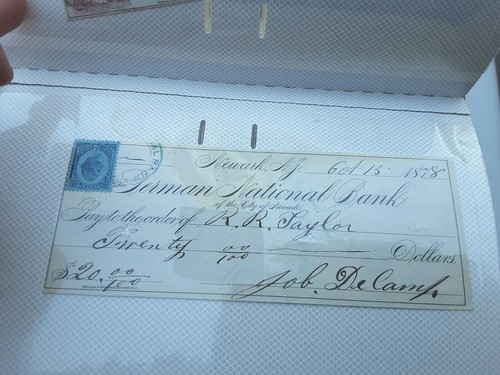 Newark, N.J. Oct 15 1878
The German National Bank
of the City of Newark.
Pay to the order of R. R. Taylor
Twenty 00/100 Dollars.
$20.00/100 Job. DeCamp.